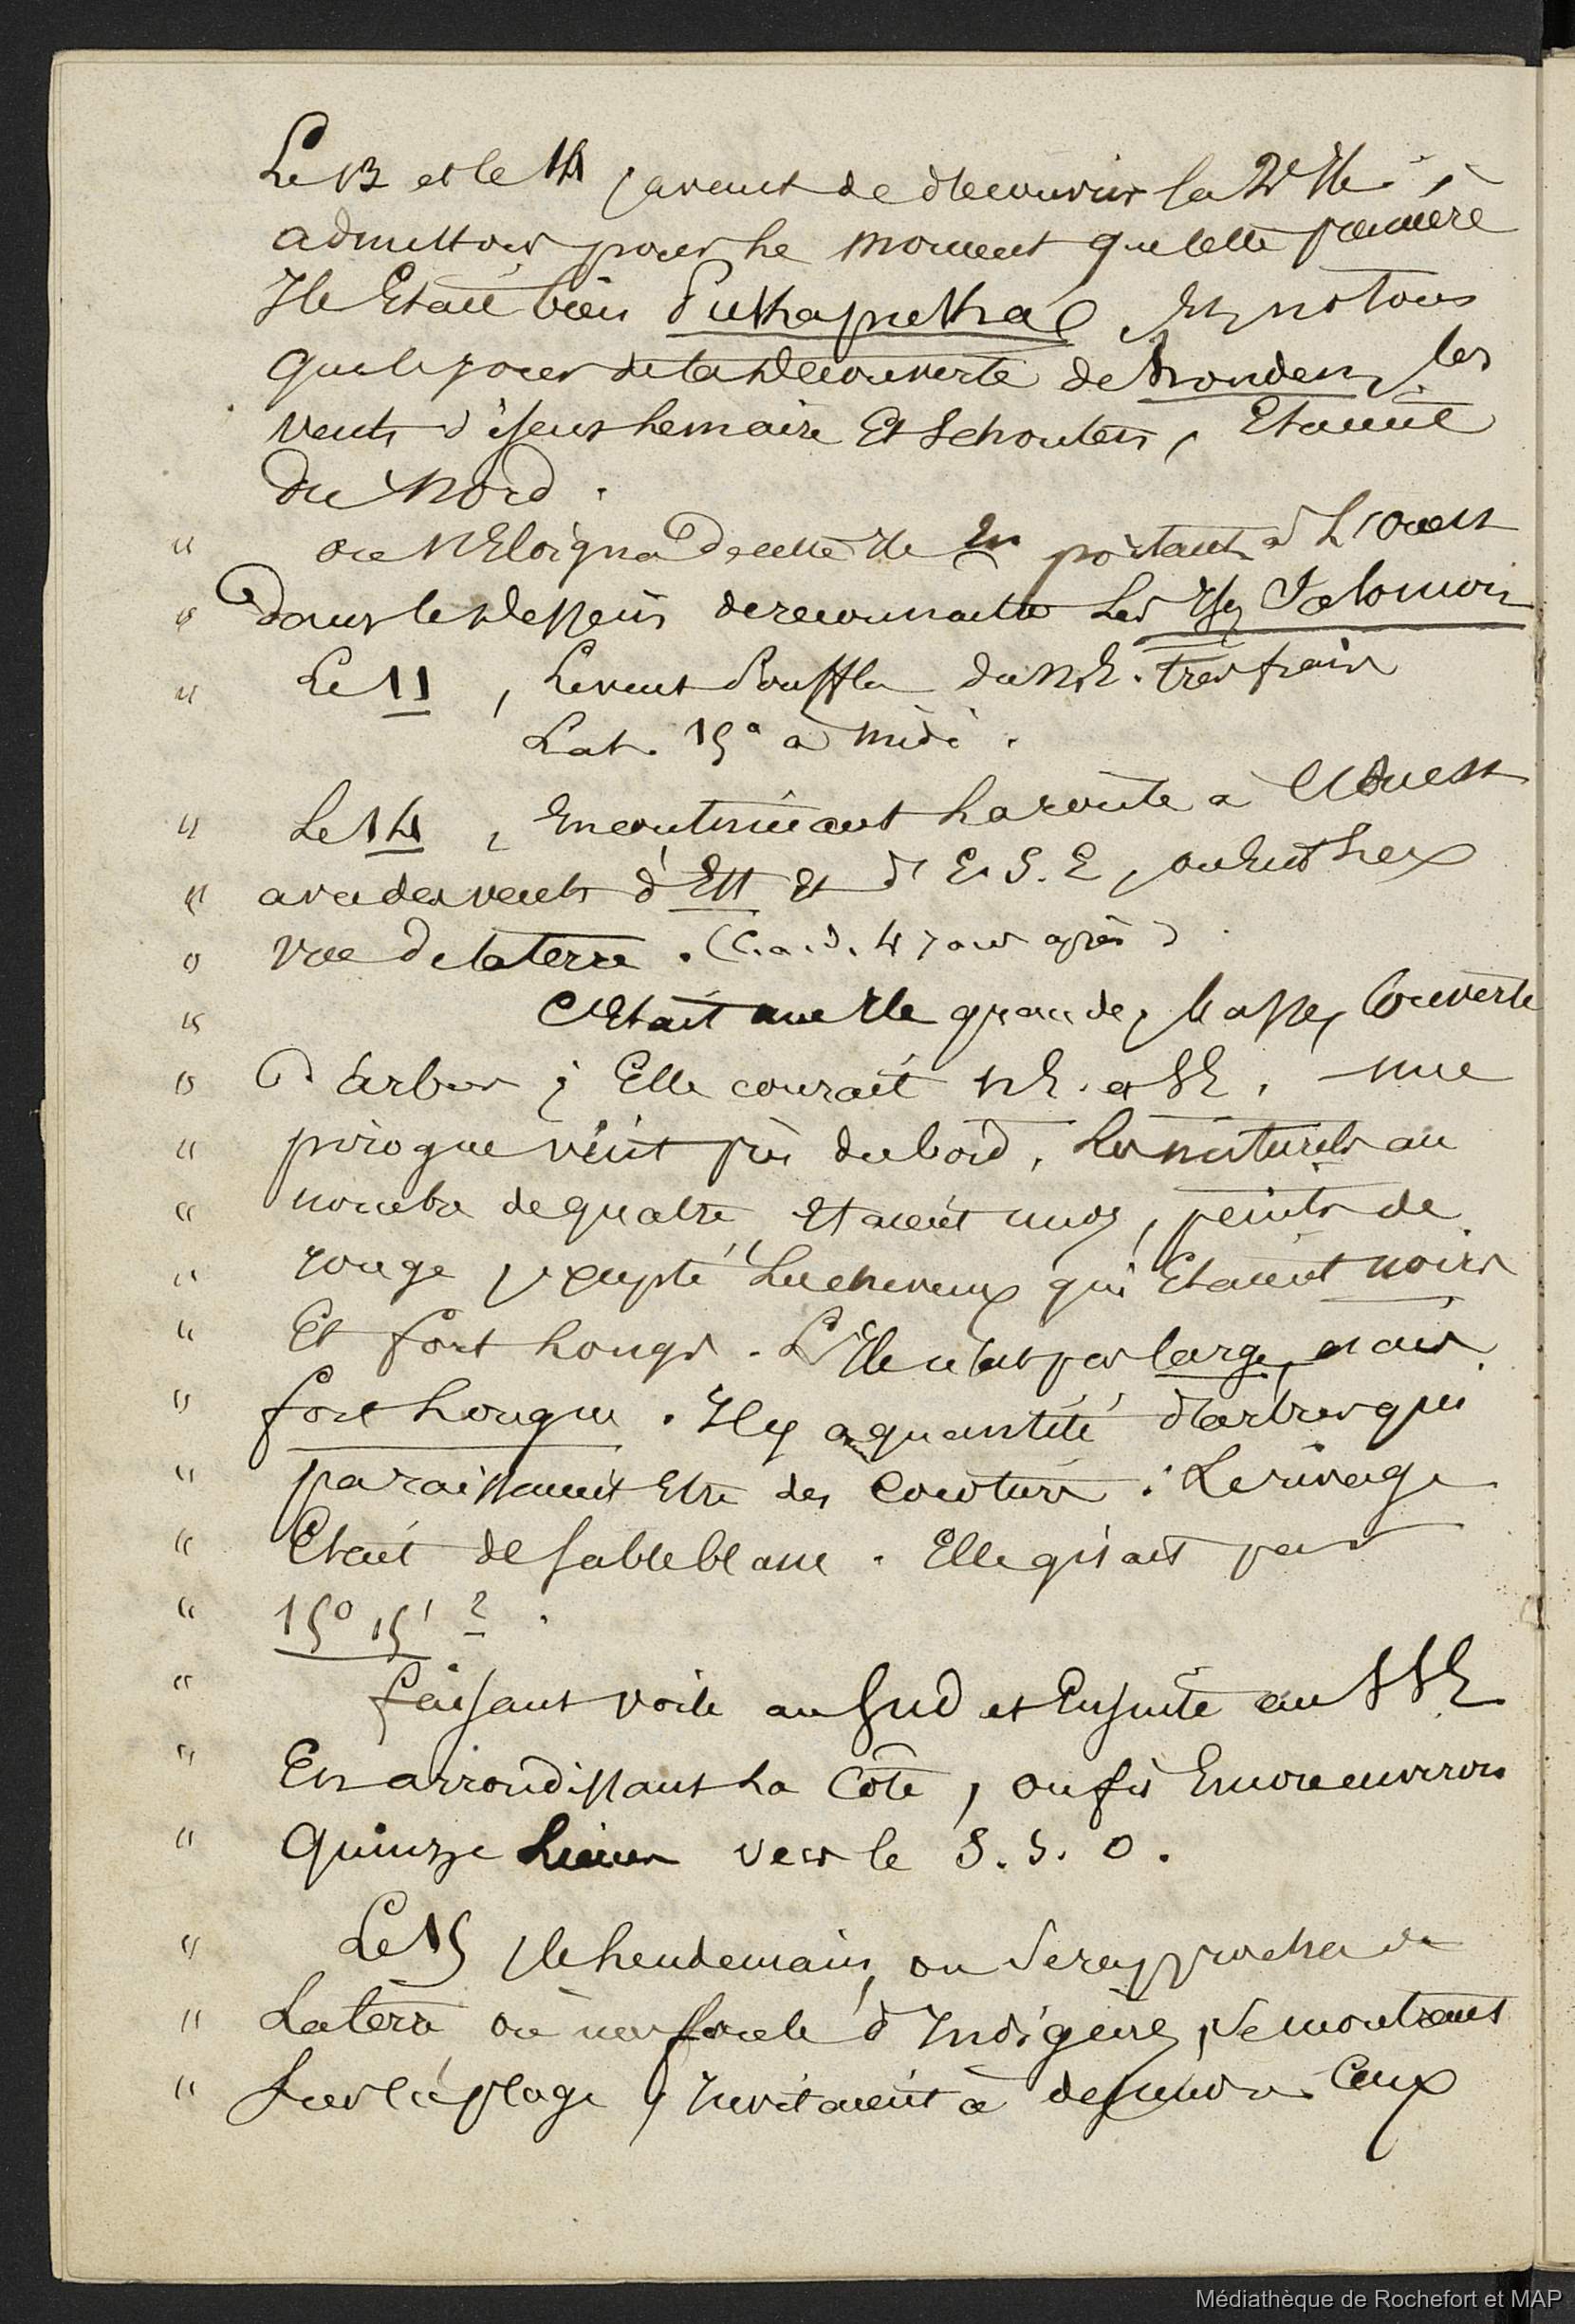 Le 13 et le 14, avant de decouvrir la 2e Ile ;
admettons pour le moment que cette premiere
Ile Etait bien Pukapuka, Et notons
que le jour de la Decouverte de honden, les
vents disent Lemaire Et Schouten, Etaient
du Nord.
" on s'Eloigna de cette Ile En portant à L'Ouest
" Dans le dessein de reconnaitre Les Iles Salomon
" Le 11, Le vent Souffla du N.E. tres frais
Lat. 15° a midi.
" Le 14, En continuant La route a l'Ouest
" avec des vents d'Est Et d'E.S.E, on Eut Les
" vue de la terre. (C.a.d. 4 jours après)
" C'Etait une Ile grande, basse, Couverte
" D'arbres ; Elle courait NE. et SE. une
" pirogue vint près du bord. Les naturels au
" nombre de quatre, Etaient nus, peints de
" rouge, excepté Les cheveux qui Etaient noirs
" Et fort Longs. L'Ile n'est pas large, mais
" fort Longue. Il y a quantité d'arbres qui
" paraissaient Etre des Cocotiers. Le rivage
" Etait de sable blanc. Elle gisait par
" 15° 15' ?
" faisant voile au Sud et Ensuite au SSE
" En arrondissant La Côte, on fit Encore environ
" Quinze Lieues vers le S.S.O.
" Le 15, le Lendemain, on Se rapprocha de
" La terre où une foule d'Indigènes, Se montrant
" Sur la plage, Invitaient à descendre Ceux
Médiathèque de Rochefort et MAP